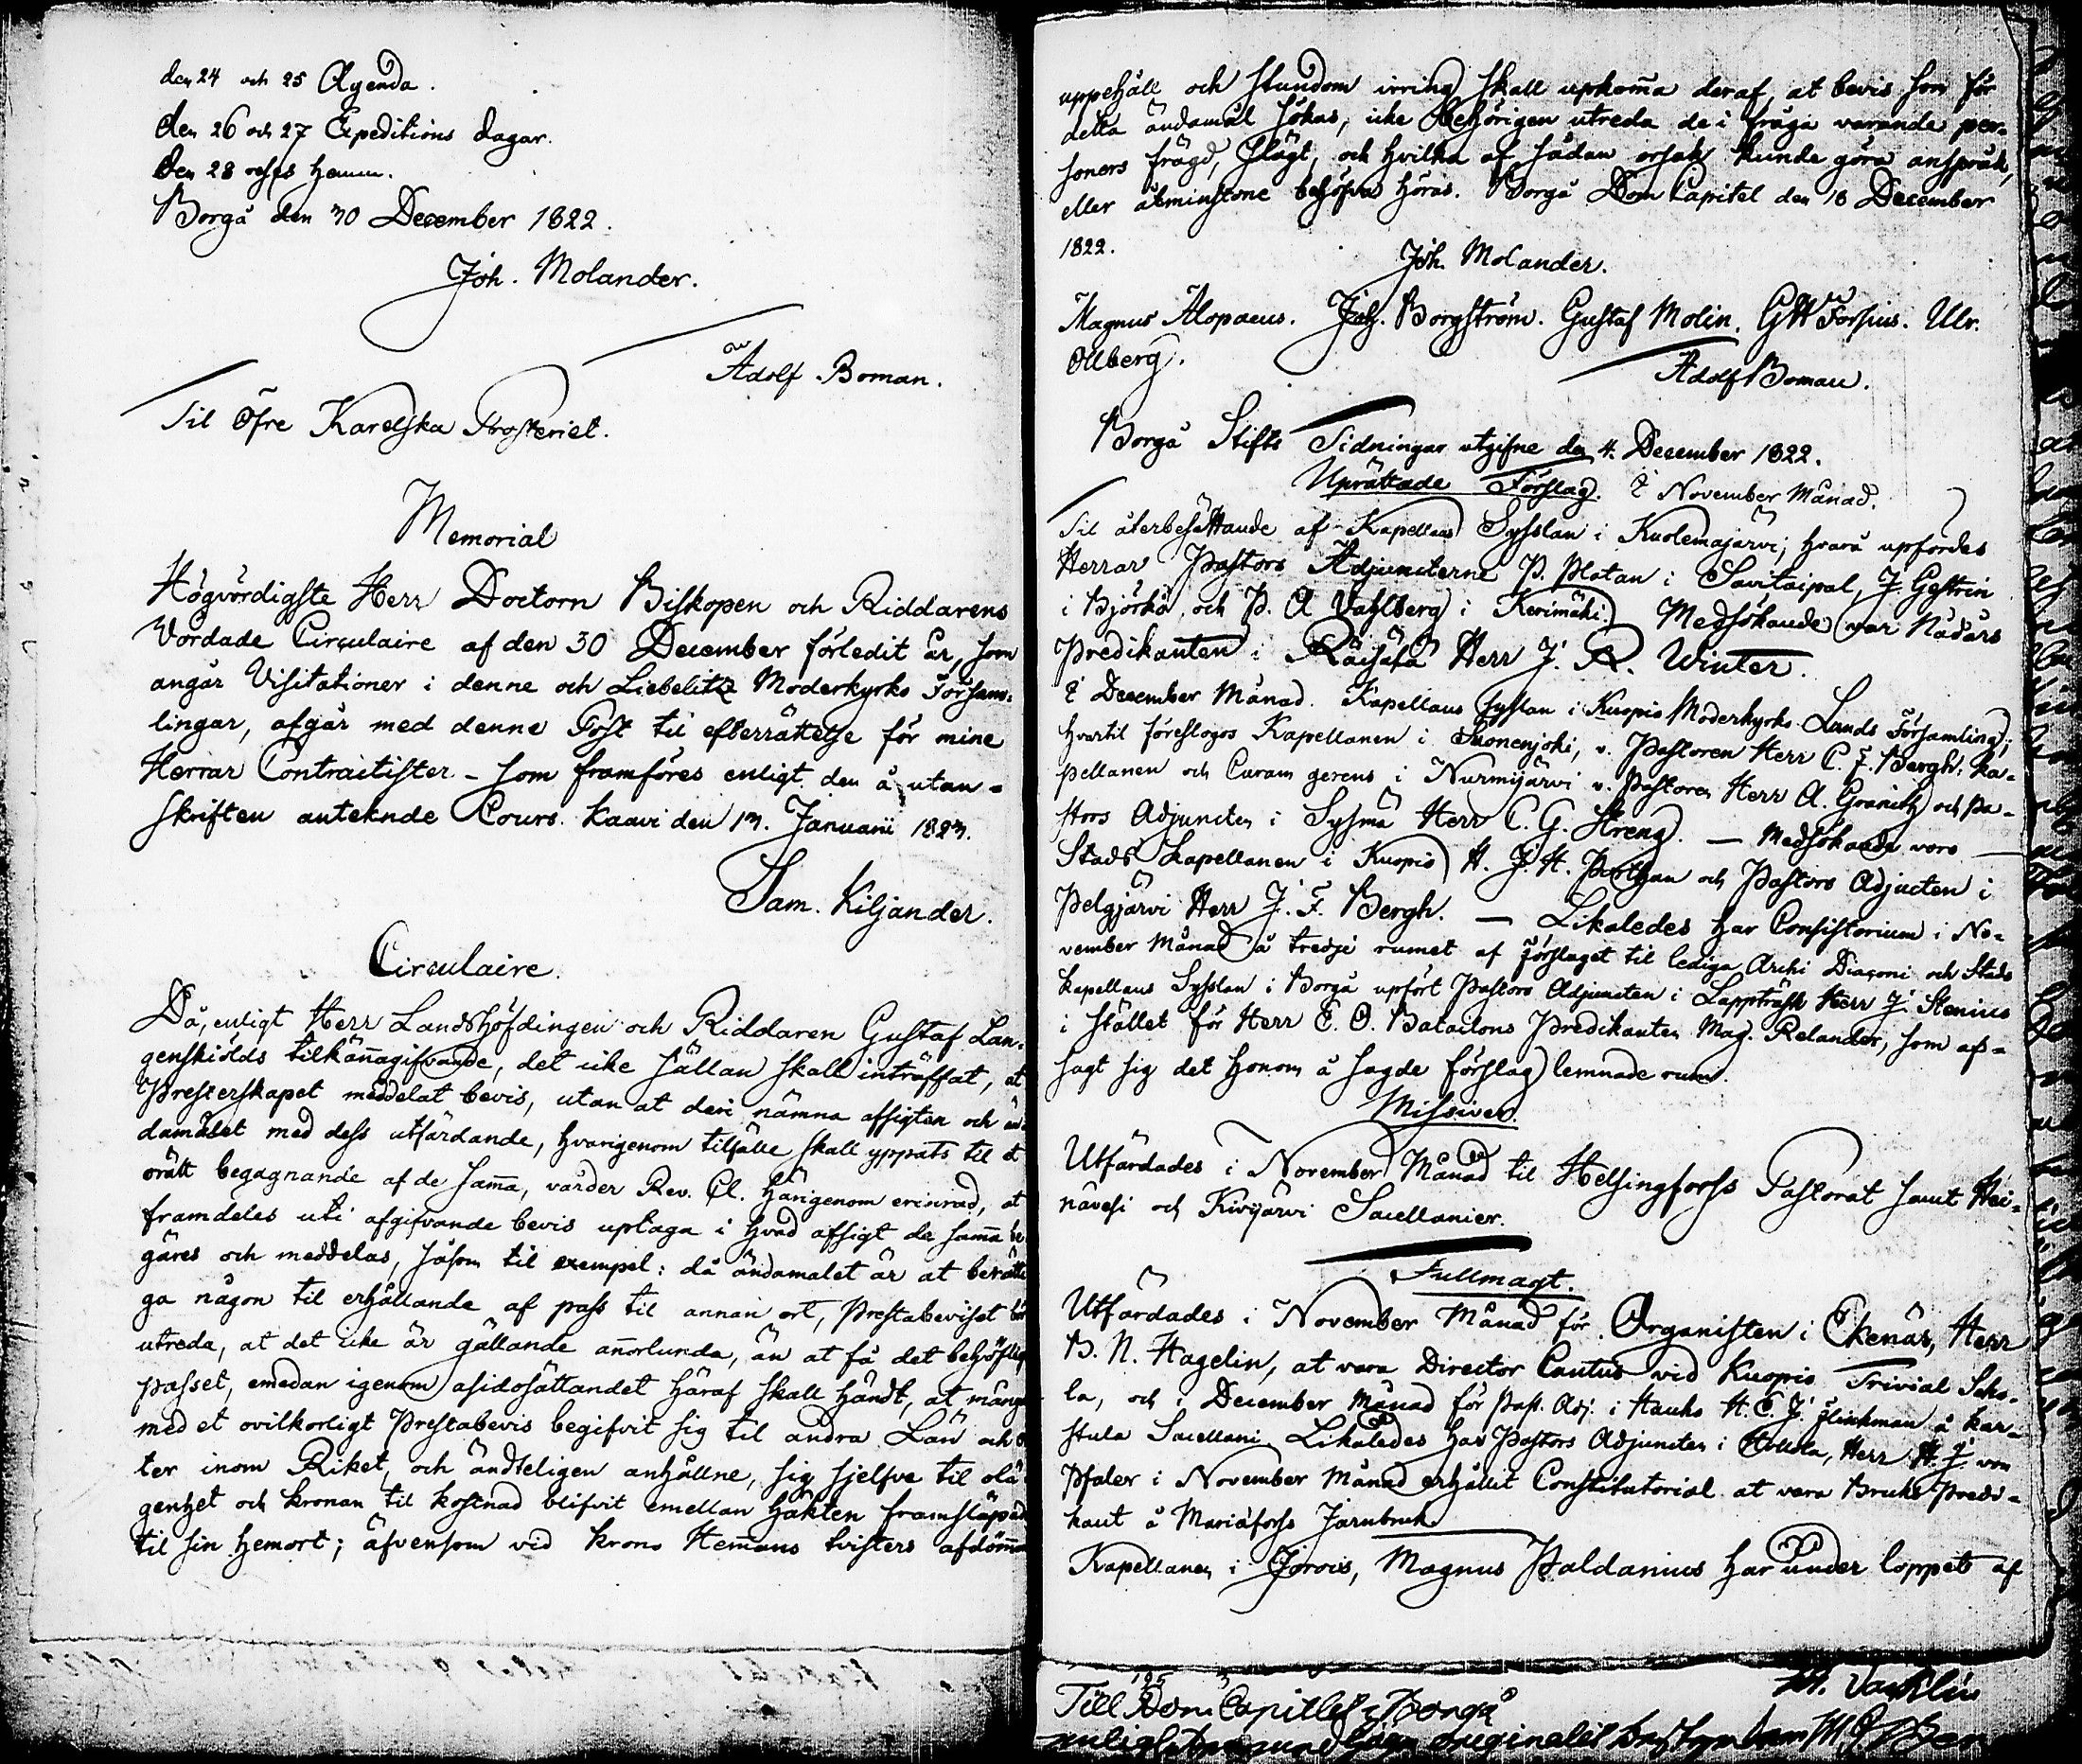 den 24 och 25 Agenda.
den 26 och 27 Expeditions dagar.
den 28 reses hemm.
Borgå den 30 December 1822.
Joh. Molander.
Adolf Boman.
Til Öfre Karelska Prosteriet.
Memorial
Högvördigste Herr Doctorn Biskopen och Riddarens
Vördade Circulaire af den 30 December förledit år, som
angår Visitationer i denne och Liebelitz Moderkyrko Försam-
lingar, afgår med denne Post til efterrättelse för mine
Herrar Contractister - som framföres enligt den å utan-
skriften anteknde Cours. Kaavi den 13. Januarii 1823.
Sam. Kiljander.
Circulaire.
Då, enligt Herr Landshöfdingen och Riddaren Gustaf Lan-
genskiölds tilkännagifvande, det icke sällan skall inträffat, at
Presterskapet meddelat bevis, utan at deri nämna afsigten och än-
damålet med dess utfärdande, hvarigenom tilfälle skall yppats til et
orätt begagnande af de samma, varder Rev. Cl. härigenom erinrad, at
framdeles uti afgifvande bevis uptaga i hvad afsigt de samma be-
gäres och meddelas, såsom til exempel: då ändamålet är at berätti-
ga någon til erhållande af pass til annan ort, Prestabeviset bör
utreda, at det icke är gällande annorlunda, än at få det behöflige
passet, emedan igenom asidosättandet häraf skall händt, at mången
med et ovilkorligt Prestabevis begifvit sig til andra Län och or-
ter inom Riket, och ändteligen anhållne, sig sjelfve til olä-
genhet och Kronan til kostnad blifvit emellan häkten framsläpade
til sin hemort; äfvensom vid Krono Hemmans tvisters afdömmande
uppehåll och stundom irring skall upkomma deraf, at bevis som för
detta ändamål sökas, icke behörigen utreda de i fråga varande per-
soners frägd, slägt, och hvilka af sådan orsak kunde göra anspråk,
eller åtminstone behöfva höras. Borgå Dom Capitel den 18 December
1822.
Joh. Molander.
Magnus Alopaeus. Joh. Borgström. Gustaf Molin. GW Forsius. Ulr.
Ollberg.
Adolf Boman.
Borgå Stifts Tidningar utgifne den 4. December 1822.
Uprättade Förslag. I November Månad.
Til återbesättande af Kapellans Sysslan i Kuolemajärvi; hvara upfördes
Herrar Pastors Adjuncterne P. Platan i Savitaipal, J. Gestrin
i Björkö, och P. A Vahlberg i Kerimäki. Medsökande var Nådårs
Predikanten i Räisälä Herr J. R. Winter.
I December Månad. Kapellans Sysslan i Kuopio Moderkyrko Lands Församling;
hvartil föreslogos Kapellanen i Suonenjoki, v. Pastoren Herr C. J. Bergh: Ka-
pellanen och Curam gerens i Nurmijärvi v. Pastoren Herr A. Granith och Pa-
stors Adjuncten i Sysmä Herr C. G. Streng. — Medsökande voro
Stads Kapellanen i Kuopio H. J. H. Porthan och Pastors Adjucten i
Pelgjärvi Herr J. F. Bergh. — Likaledes har Consistorium i No-
vember Månad å tredje rumet af Förslaget til lediga Archi Diaconi och Stads
Kapellans Sysslan i Borgå upfört Pastors Adjuncten i Lappträsk Herr J. Stenius
i stället för Herr E. O. Batailons Predikanten Mag. Relander, som af-
sagt sig det honom å sagde förslag lemnade rum.
Missiver.
Utfärdades i November Månad til Helsingforss Pastorat samt Hei-
nävesi och Kivijärvi Sacellanier.
Fullmagt.
Utfärdades i November Månad för Organisten i Ekenäs, Herr
B. N. Hagelin, at vara Director Cantus vid Kuopio Trivial Scho-
la, och i December Månad för Past. Adj. i Hauho H. C. J. Flinkman å Kar-
stula Sacellani. Likaledes har Pastors Adjuncten i Hollola, Herr H. J. von
Pfaler i November Månad erhållit Constitutorial at vara Bruks Predi-
kant å Mariæforss Järnbruk.
Kapellanen i Jorois, Magnus Paldanius har under loppet af
Till Dom Capitlet i Borgå